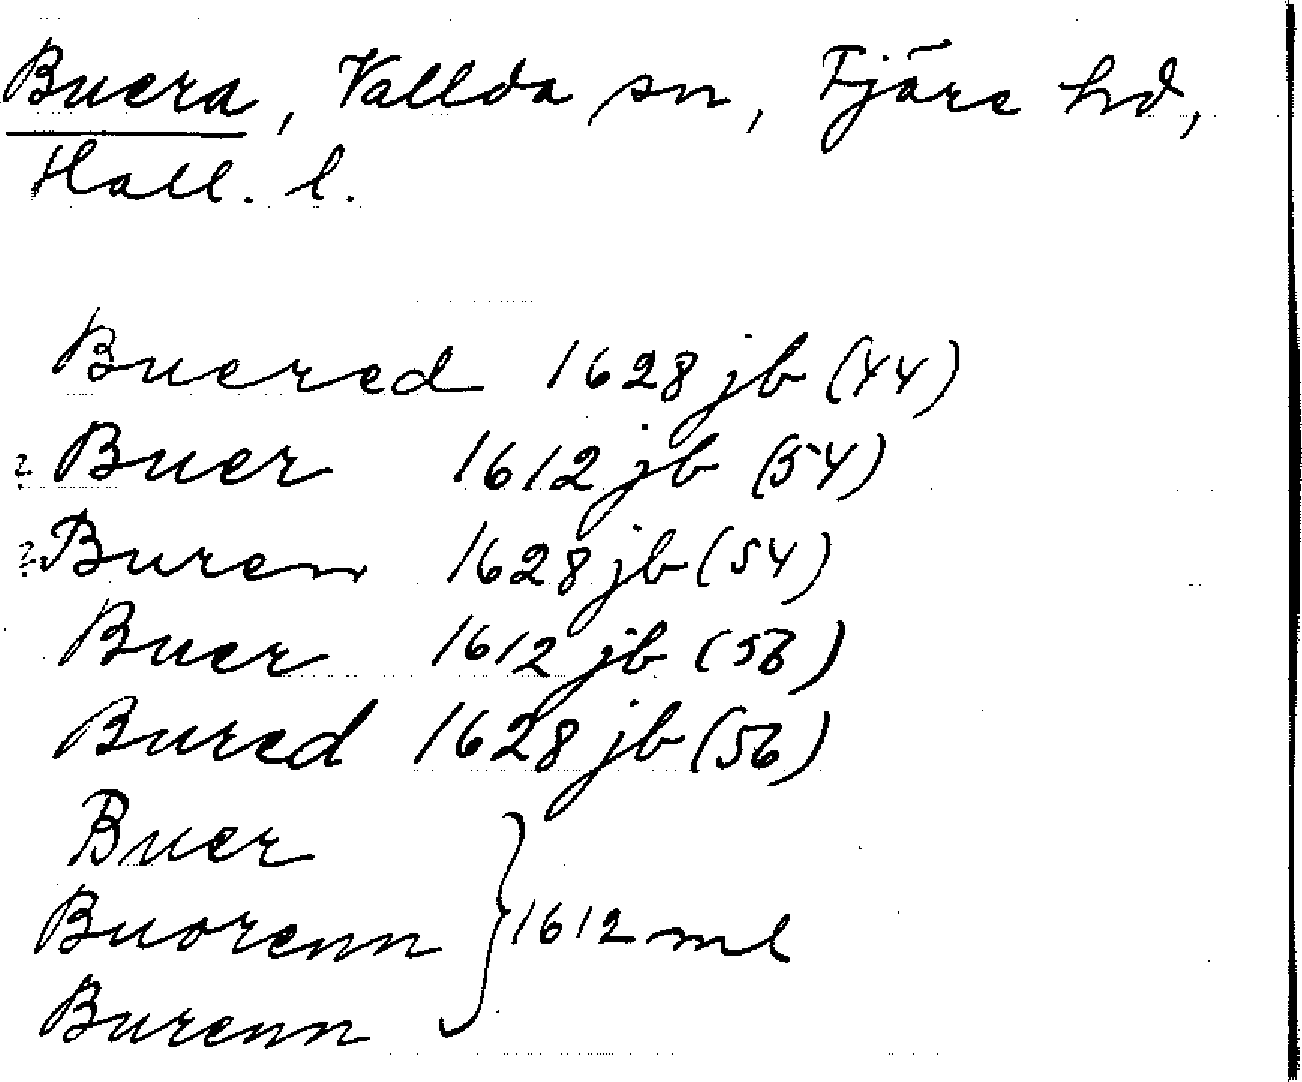 Buera, Vallda sn, Fjäre hd,
Hall. l.
Buered 1628 jb (44)
? Buer 1612 jb (54)
? Buren 1628 jb (54)
Buer 1612 jb (56)
Bured 1628 jb (56)
Buer
Buorenn } 1612 ml
Burenn